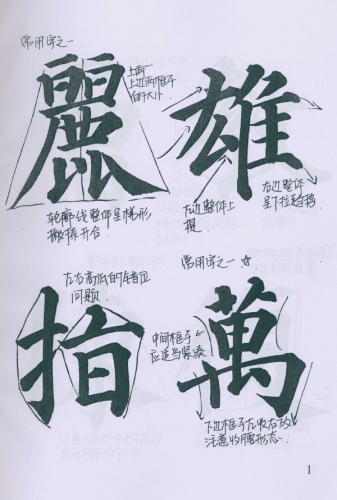 常用字之一
麗
上面
上边两框子
的大小
轮廓线整体呈梯形
撇捺开合
雄
左边整体上
提
右边整体
呈下拉趋势
左右高低的错位
问题
指
常用字之一
中间框子
应适当紧凑
萬
下边框子左收右放
注意收腰形态
1